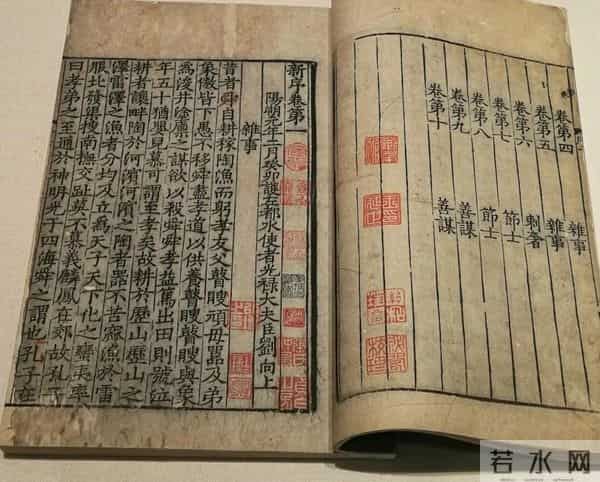 卷第四 雜事
卷第五 雜事
卷第六 刺奢
卷第七 節士
卷第八 節士
卷第九 善謀
卷第十 善謀
新序卷第一
陽朔元年二月癸卯護左都水使者光祿大夫臣劉向上
雜事
昔者舜自耕稼陶漁而躬孝友父瞽瞍頑母嚚及弟
象傲皆下愚不移舜盡孝道以供養瞽瞍瞽瞍與象
為浚井塗廩之謀欲以殺舜舜孝益篤出田則號泣
年五十猶嬰兒慕可謂至孝矣故耕於歷山歷山之
耕者讓畔陶於河濱河濱之陶者器不苦窳漁於雷
澤雷澤之漁者分均及立為天子天下化之蠻夷率
服北發渠搜南撫交阯莫不慕義麟鳳在郊故孔子
曰孝弟之至通於神明光于四海舜之謂也孔子在
若水网